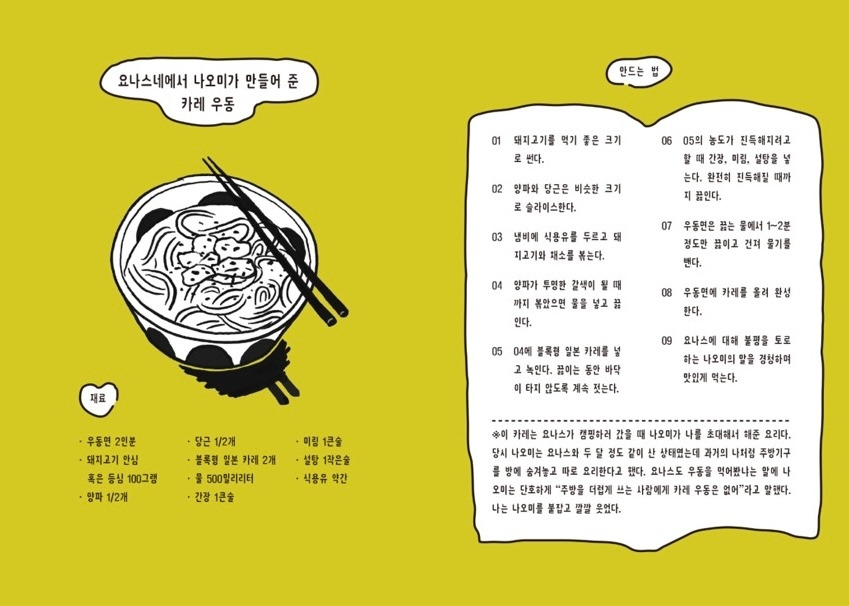 요나스네에서 나오미가 만들어 준
카레 우동
재료
· 우동면 2인분
· 돼지고기 안심
혹은 등심 100그램
· 양파 1/2개
· 당근 1/2개
· 블록형 일본 카레 2개
· 물 500밀리리터
· 간장 1큰술
· 미림 1큰술
· 설탕 1작은술
· 식용유 약간
만드는 법
01 돼지고기를 먹기 좋은 크기
로 썬다.
02 양파와 당근은 비슷한 크기
로 슬라이스한다.
03 냄비에 식용유를 두르고 돼
지고기와 채소를 볶는다.
04 양파가 투명한 갈색이 될 때
까지 볶았으면 물을 넣고 끓
인다.
05 04에 블록형 일본 카레를 넣
고 녹인다. 끓이는 동안 바닥
이 타지 않도록 계속 젓는다.
06 05의 농도가 진득해지려고
할 때 간장, 미림, 설탕을 넣
는다. 완전히 진득해질 때까
지 끓인다.
07 우동면은 끓는 물에서 1~2분
정도만 끓이고 건져 물기를
뺀다.
08 우동면에 카레를 올려 완성
한다.
09 요나스에 대해 불평을 토로
하는 나오미의 말을 경청하며
맛있게 먹는다.
※이 카레는 요나스가 캠핑하러 갔을 때 나오미가 나를 초대해서 해준 요리다.
당시 나오미는 요나스와 두 달 정도 같이 산 상태였는데 과거의 나처럼 주방기구
를 방에 숨겨놓고 따로 요리한다고 했다. 요나스도 우동을 먹어봤냐는 말에 나
오미는 단호하게 “주방을 더럽게 쓰는 사람에게 카레 우동은 없어”라고 말했다.
나는 나오미를 붙잡고 깔깔 웃었다.